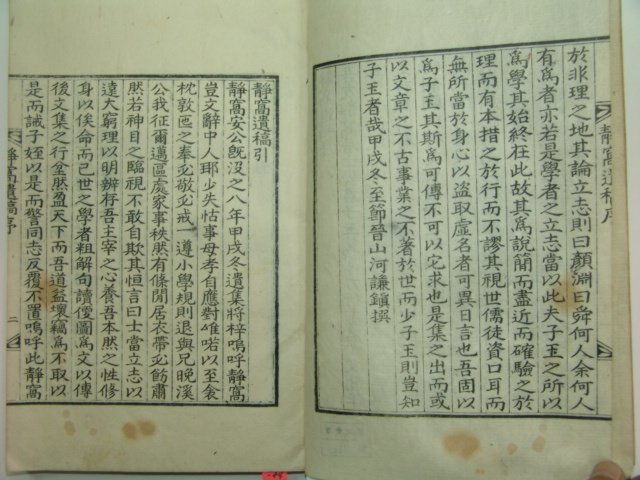 靜窩遺稿序
於非理之地其論立志則曰顔淵曰舜何人余何人
有爲者亦若是學者之立志當以此夫子王之所以
爲學其始終在此故其爲說簡而盡近而確驗之於
理而有本措之於行而不謬其視世儒徒資口耳而
無所當於身心以盜取虛名者可異日言也吾固以
爲子王其斯爲可傳不可以它求也是集之出而或
以文章之不古事業之不著於世而少子王則豈知
子王者哉甲戌冬至節晉山河謙鎭撰
靜窩遺稿引
靜窩安公旣沒之八年甲戌冬遺集將梓嗚呼靜窩
豈文辭中人耶少失怙事母孝自應對唯喏以至食
枕敦匜之奉必敬必戒一遵小學規則退與兄晚溪
公我征爾邁區處家事秩然有條閒居衣帶必飭肅
然若神目之臨視不敢自欺其恒言曰士當立志以
遠大窮理以明辨存吾主宰之心養吾本然之性修
身以俟命而已世之學者粗解句讀僾圖爲文以傳
後文集之行坌然盈天下而吾道益壞竊爲不取以
是而誡子姪以是而警同志反覆不置嗚呼此靜窩
靜窩遺稿序
二